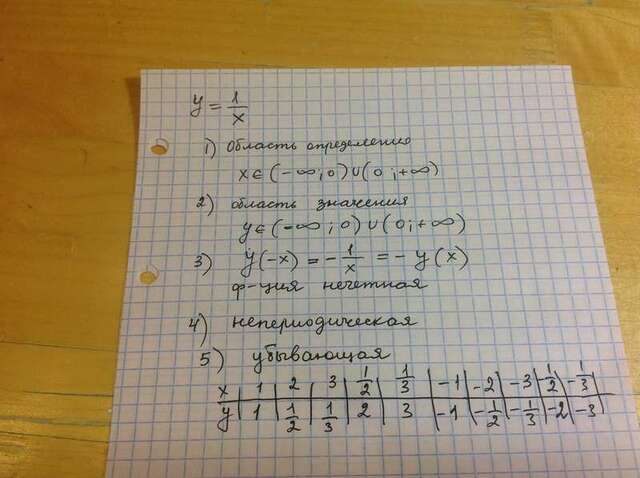 y = 1/x
1) Область определения
x ∈ (-∞; 0) ∪ (0; +∞)
2) область значения
y ∈ (-∞; 0) ∪ (0; +∞)
3) y(-x) = -1/x = -y(x)
ф-ция нечетная
4) непериодическая
5) убывающая
x | 1 | 2 | 3 | 1/2 | 1/3 | -1 | -2 | -3 | -1/2 | -1/3
y | 1 | 1/2 | 1/3 | 2 | 3 | -1 | -1/2 | -1/3 | -2 | -3